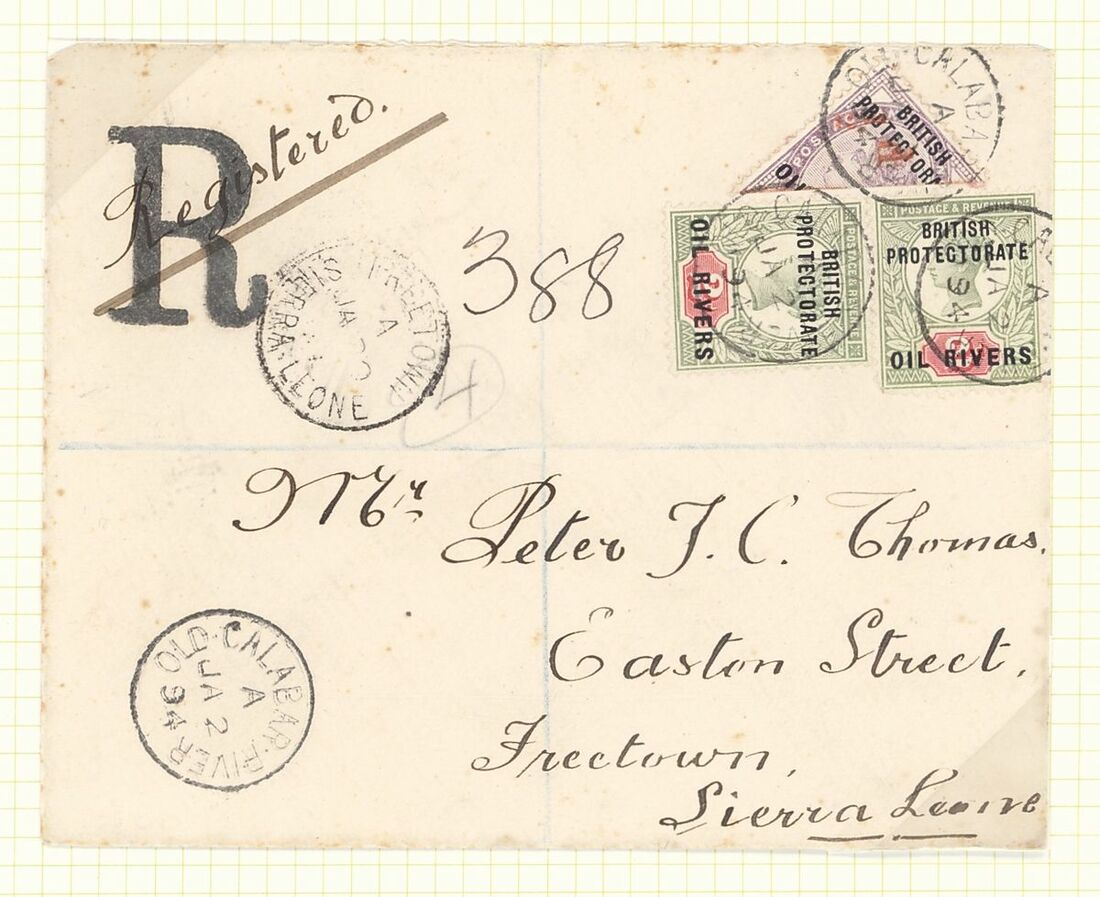 R
Registered.
388
OLD CALABA
A
BRITISH
PROTECTORA
POSTAG
OIL
BRITISH
PROTECTORATE
OIL RIVERS
POSTAGE & REVENUE
JA 2
POSTAGE & REVENUE
BRITISH
PROTECTORATE
OIL RIVERS
A
94
FREETOWN
A
JA
SIERRA-LEONE
Mr Peter J. C. Thomas.
Easton Street,
Freetown,
Sierra Leone
OLD-CALABAR-RIVER
A
JA 2
94